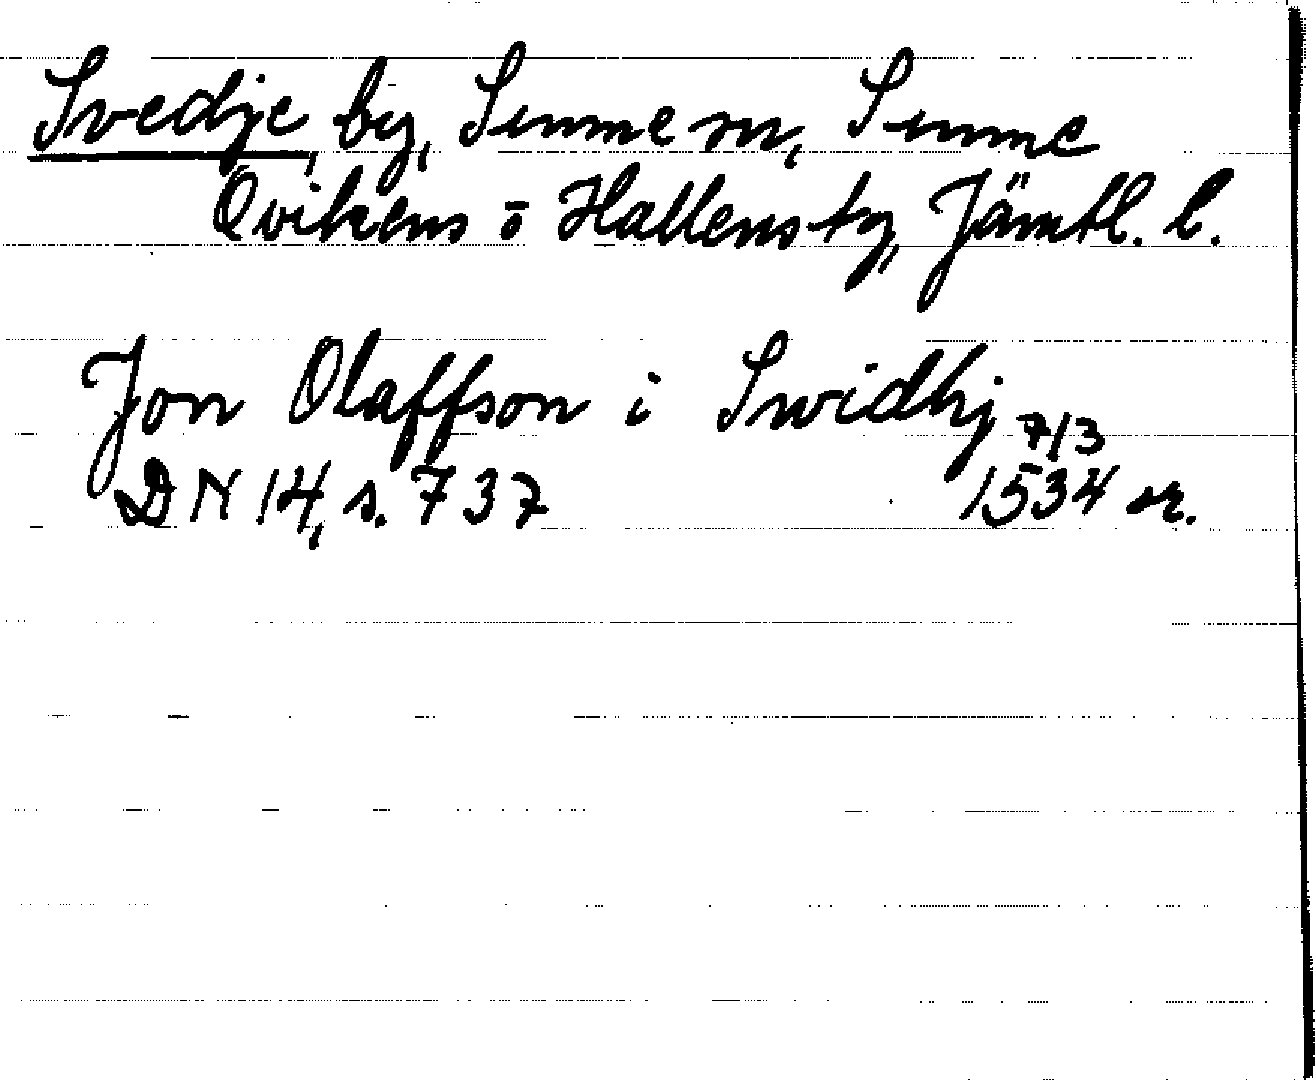 Svedje, by, Sunne sn, Sunne
Ovikens o Hallens tg, Jämtl. l.
Jon Olaffson i Swidhj
7/3
DN 14, s. 737 1534 or.